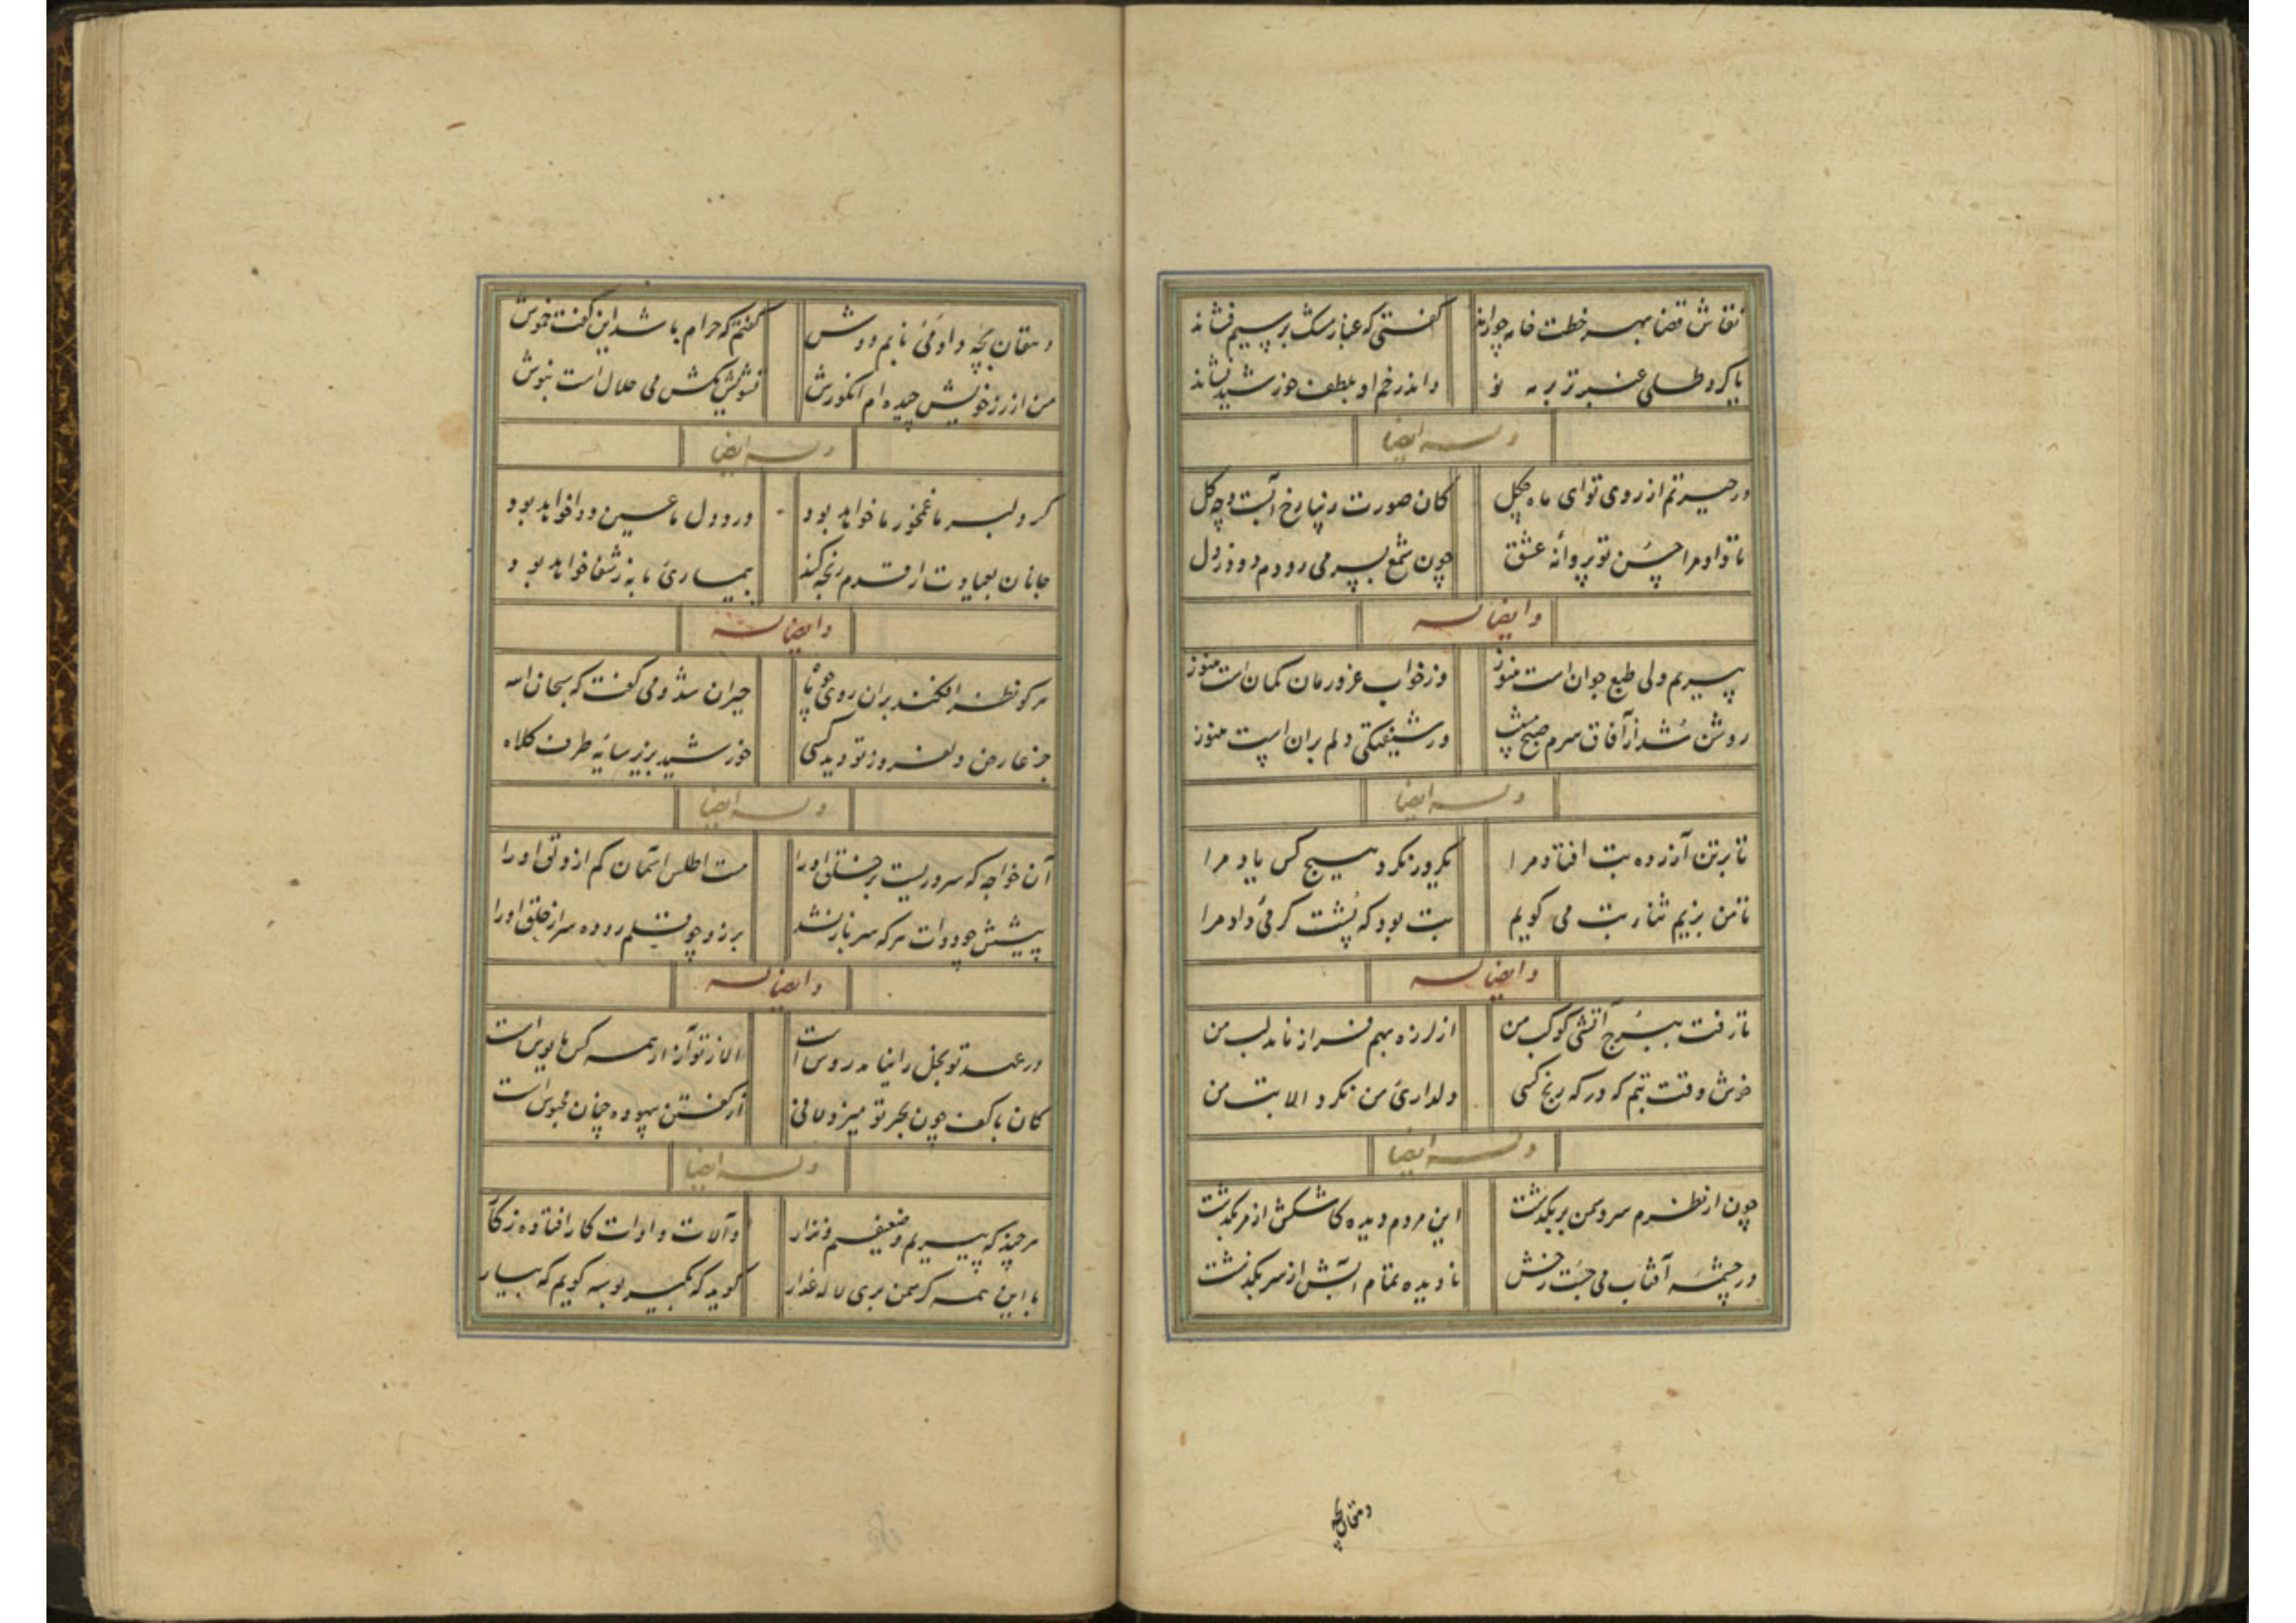 نقاش قضا بهر خطت خامه چو راند گفتی که غبار مشک بر سیم فشاند
یا کرد طلی عنبر تر بر مه نو و اندر خم او بلطف خورشید نشاند
وله ایضا
در حیرتم از روی تو ای ماه چگل کان صورت زیبا رخ آبست و چه گل
تا داد مرا حسن تو پروانه عشق چون شمع بسر می رودم دود ز دل
وایضا له
پیریم ولی طبع جوان است هنوز وز خواب غرور مان کمان است هنوز
روشن شد از آفاق سرم صبح مشیب در شیفتگی دلم بران است هنوز
وله ایضا
تا بر تن آزرده تب افتاد مرا یکروز نکرد هیچ کس یاد مرا
تا من بزیم ثنای تب می گویم تب بود که پشت گرمئ داد مرا
وایضا له
تا رفت ببرج آتشی کوکب من از لرزه بهم فراز نامد لب من
خوش وقت تبم که در گه رنج کسی دلداری من نکرد الا تب من
وله ایضا
چون از نظرم سرو سمن بر بگذشت این مردم دیده کاشکش از سر بگذشت
در چشمه آفتاب می جست رخش نادیده تمام آبش از سر بگذشت
دهقان بچه
دهقان بچه داد مئ نابم دوش گفتم که حرام باشد این گفت خموش
من از رز خویش چیده ام انگورش تشویش مکش می حلال است بنوش
وله ایضا
گر دلبر ما غمخور ما خواهد بود درد دل ما عین دوا خواهد بود
جانان بعیادت ار قدم رنجه کند بیماری ما به ز شفا خواهد بود
وایضا له
هر کو نظر افکند بران روی چو ماه حیران شد و می گفت که سبحان الله
جز عارض دلفروز تو دید کسی خورشید بزیر سایه طرف کلاه
وله ایضا
آن خواجه که سروریست بر خلق او را هست اطلس آسمان کم از دلق او را
پیش چو دوات هر که سرباز نشد برزد چو قلم روده سر از حلق او را
وایضا له
در عهد تو بخل را نیامد روس است الا ز تو آز از همه کس مایوس است
کان با کف چون بحر تو میزد لافی از گفتن بیهوده چنان محبوس است
وله ایضا
هر چند که پیریم و ضعیفیم و نزار و آلات و ادوات کار افتاده ز کار
با این همه گر سمن بری لاله عذار گوید که بگیر بوسه گویم که بیار